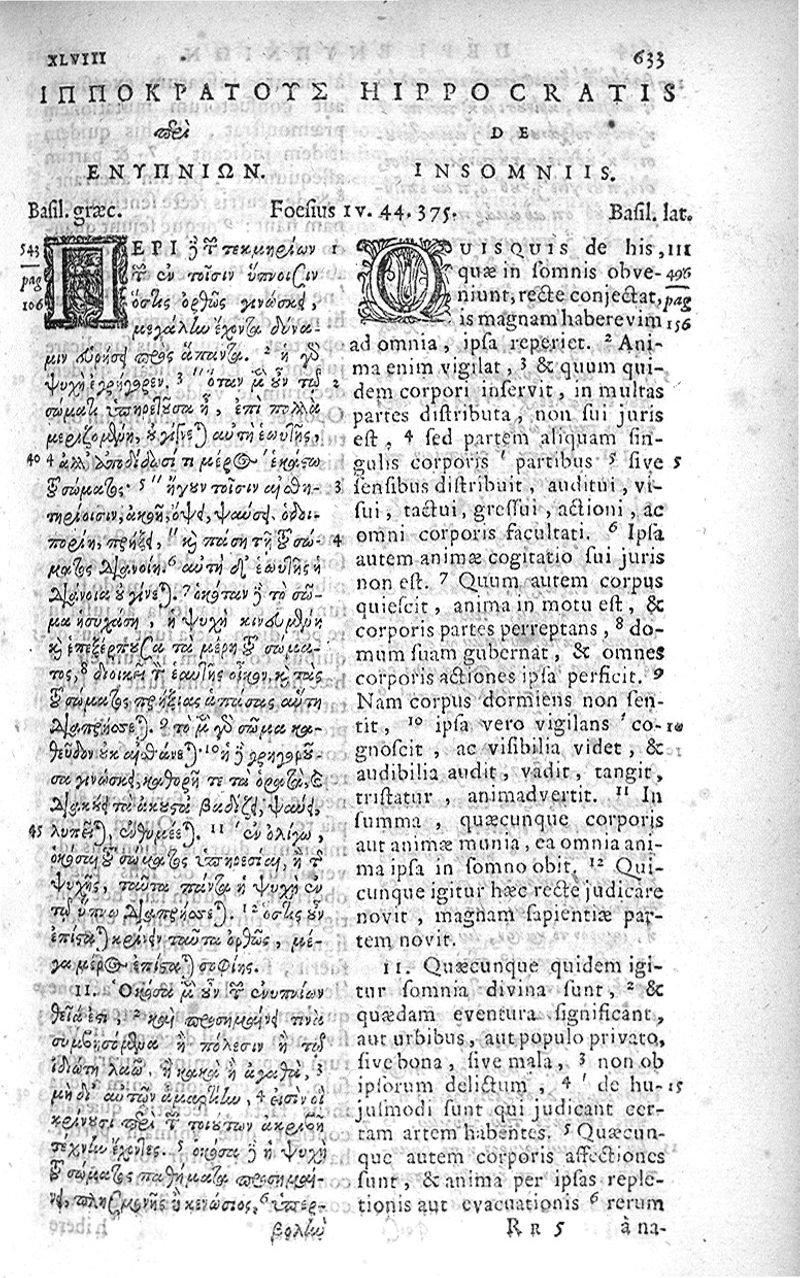 XLVIII 633
ΙΠΠΟΚΡΑΤΟΥΣ HIPPOCRATIS
περὶ DE
ΕΝΥΠΝΙΩΝ. INSOMNIIS.
Basil. græc. Foesius IV. 44. 375. Basil. lat.
543 ΠΕΡΙ δὲ τῶν τεκμηρίων 1
pag τῶν ἐν τοῖσιν ὕπνοισιν
106 ὅστις ὀρθῶς γινώσκει,
μεγάλην ἔχοντα δύνα-
μιν εὑρήσει πρὸς ἅπαντα. 2 ἡ γὰρ
ψυχὴ ἐγρήγορεν. 3 ὅταν μὲν οὖν τῷ 2
σώματι ὑπηρετέουσα ᾖ, ἐπὶ πολλὰ
μεριζομένη, οὐ γίνεται αὐτὴ ἑωυτῆς,
40 4 ἀλλ' ἀποδίδωσί τι μέρος ἑκάστῳ
τοῦ σώματος· 5 ἤγουν τοῖσιν αἰσθη- 3
τηρίοισιν, ἀκοῇ, ὄψει, ψαύσει. ὁδοι-
πορίῃ, πρήξει, καὶ πάσῃ τῇ τοῦ σώ- 4
ματος διανοίῃ. 6 αὐτὴ δ' ἑωυτῆς ἡ
διάνοια οὐ γίνεται. 7 ὁκόταν δὲ τὸ σῶ-
μα ἡσυχάσῃ, ἡ ψυχὴ κινουμένη
καὶ ἐπεξέρπουσα τὰ μέρη τοῦ σώμα-
τος, 8 διοικεῖ τὸν ἑαυτῆς οἶκον, καὶ τὰς
τοῦ σώματος πρήξιας ἁπάσας αὕτη
διαπρήσσεται. 9 τὸ μὲν γὰρ σῶμα κα-
θεῦδον οὐκ αἰσθάνεται 10 ἡ δὲ ἐγρηγορέου-
σα γινώσκει, καθορῇ τε τὰ ὁρατὰ, καὶ
διακούει τὰ ἀκουστὰ βαδίζει, ψαύει,
45 λυπέεται, ἐνθυμέεται. 11 ἐν ὀλίγῳ,
ὁκόσαι τοῦ σώματος ὑπηρεσίαι, ἢ τῆς
ψυχῆς, ταῦτα πάντα ἡ ψυχὴ ἐν
τῷ ὕπνῳ διαπρήσσεται. 12 ὅστις οὖν
ἐπίσταται κρίνειν ταῦτα ὀρθῶς, μέ-
γα μέρος ἐπίσταται σοφίης.
11. Ὁκόσα μὲν οὖν τῶν ἐνυπνίων
θεῖά ἐστι, 2 καὶ προσημαίνει τινὰ
συμβησόμενα ἢ πόλεσιν ἢ τῷ
ἰδιώτῃ λαῷ, ἢ κακὰ ἢ ἀγαθὰ, 3
μὴ δι' αὐτῶν ἁμαρτίην, 4 εἰσὶν οἳ
κρίνουσι περὶ τῶν τοιούτων ἀκριβῆ
τέχνην ἔχοντες. 5 ὁκόσα δὲ ἡ ψυχὴ
τοῦ σώματος παθήματα προσημαί-
νει, πλησμονῆς ἢ κενώσιος, 6 ὑπερ-
βολὴν
QUISQUIS de his, III
quæ in somnis obve- 496
niunt, recte conjectat, pag
is magnam habere vim 156
ad omnia, ipsa reperiet. 2 Ani-
ma enim vigilat, 3 & quum qui-
dem corpori inservit, in multas
partes distributa, non sui juris
est, 4 sed partem aliquam sin-
gulis corporis ' partibus 5 sive 5
sensibus distribuit, auditui, vi-
sui, tactui, gressui, actioni, ac
omni corporis facultati. 6 Ipsa
autem animæ cogitatio sui juris
non est. 7 Quum autem corpus
quiescit, anima in motu est, &
corporis partes perreptans, 8 do-
mum suam gubernat, & omnes
corporis actiones ipsa perficit. 9
Nam corpus dormiens non sen-
tit, 10 ipsa vero vigilans ' co- 10
gnoscit, ac visibilia videt, &
audibilia audit, vadit, tangit,
tristatur, animadvertit. 11 In
summa, quæcunque corporis
aut animæ munia, ea omnia ani-
ma ipsa in somno obit. 12 Qui-
cunque igitur hæc recte judicare
novit, magnam sapientiæ par-
tem novit.
11. Quæcunque quidem igi-
tur somnia divina sunt, 2 &
quædam eventura significant,
aut urbibus, aut populo privato,
sive bona, sive mala, 3 non ob
ipsorum delictum, 4 ' de hu- 15
jusmodi sunt qui judicant cer-
tam artem habentes. 5 Quæcun-
que autem corporis affectiones
sunt, & anima per ipsas reple-
tionis aut evacuationis 6 rerum
Rr 5 à na-